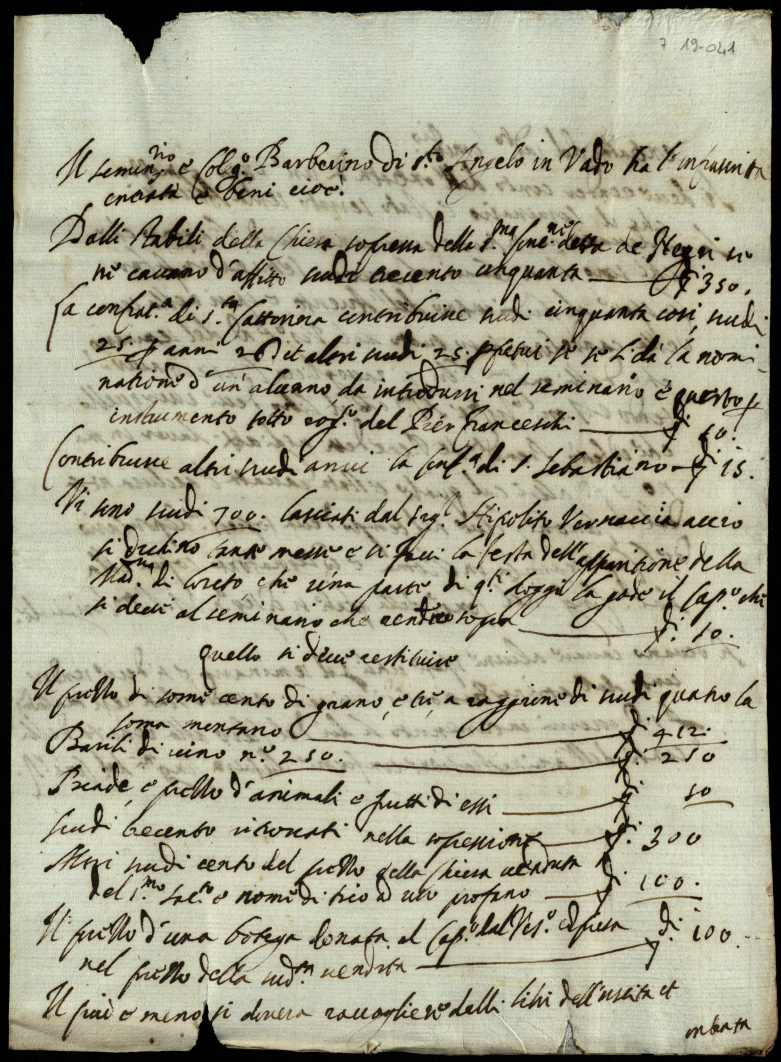 7. 19-041
Il semin.rio e Col.o Barberino di S.to Angelo in Vado ha l'infrascritta
entrata e beni cioè.
Dalli stabili della Chiesa soppressa della S.ma
ne cavano d'affitto scudi trecento cinquanta — 350.
La confrat.a di S.ta Catterina contribuisce scudi cinquanta così, scudi
25. p anni 26 et altri scudi 25. ppetui se se li dà la nomi-
natione d'un alunno da introdursi nel seminario e questo p
instrumento sotto rog.o del Pier Franceschi — 50.
Contribuisce altri scudi annui la conf.a di S. Sebastiano — 15.
Vi sono scudi 700. lasciati dal Sig.r Hipolito Vernaccia acciò
si dichino tante messe e si facci la festa dell'apparitione della
Mad.na di Loreto, che una parte di q.ti la gode il Cap.o che
si deve al seminario che rende — 10.
quello si deve restituire
Il fruttto di some cento di grano, e tre, a raggione di scudi quatro la
soma montano — 412.
Barili di vino n.o 250. — 250
e frutto d'animali e frutti di essi — 50
Scudi trecento nella soppressione — 300
Altri scudi cento del frutto della Chiesa venduta
del S.mo e nome di Dio ad uso profano — 100.
Il frutto d'una botega donata al Cap.o dal Vesc.o
nel frutto della sud.ta vendita — 100.
Il più e meno si doverà raccogliere dalli libri dell'uscita et
entrata